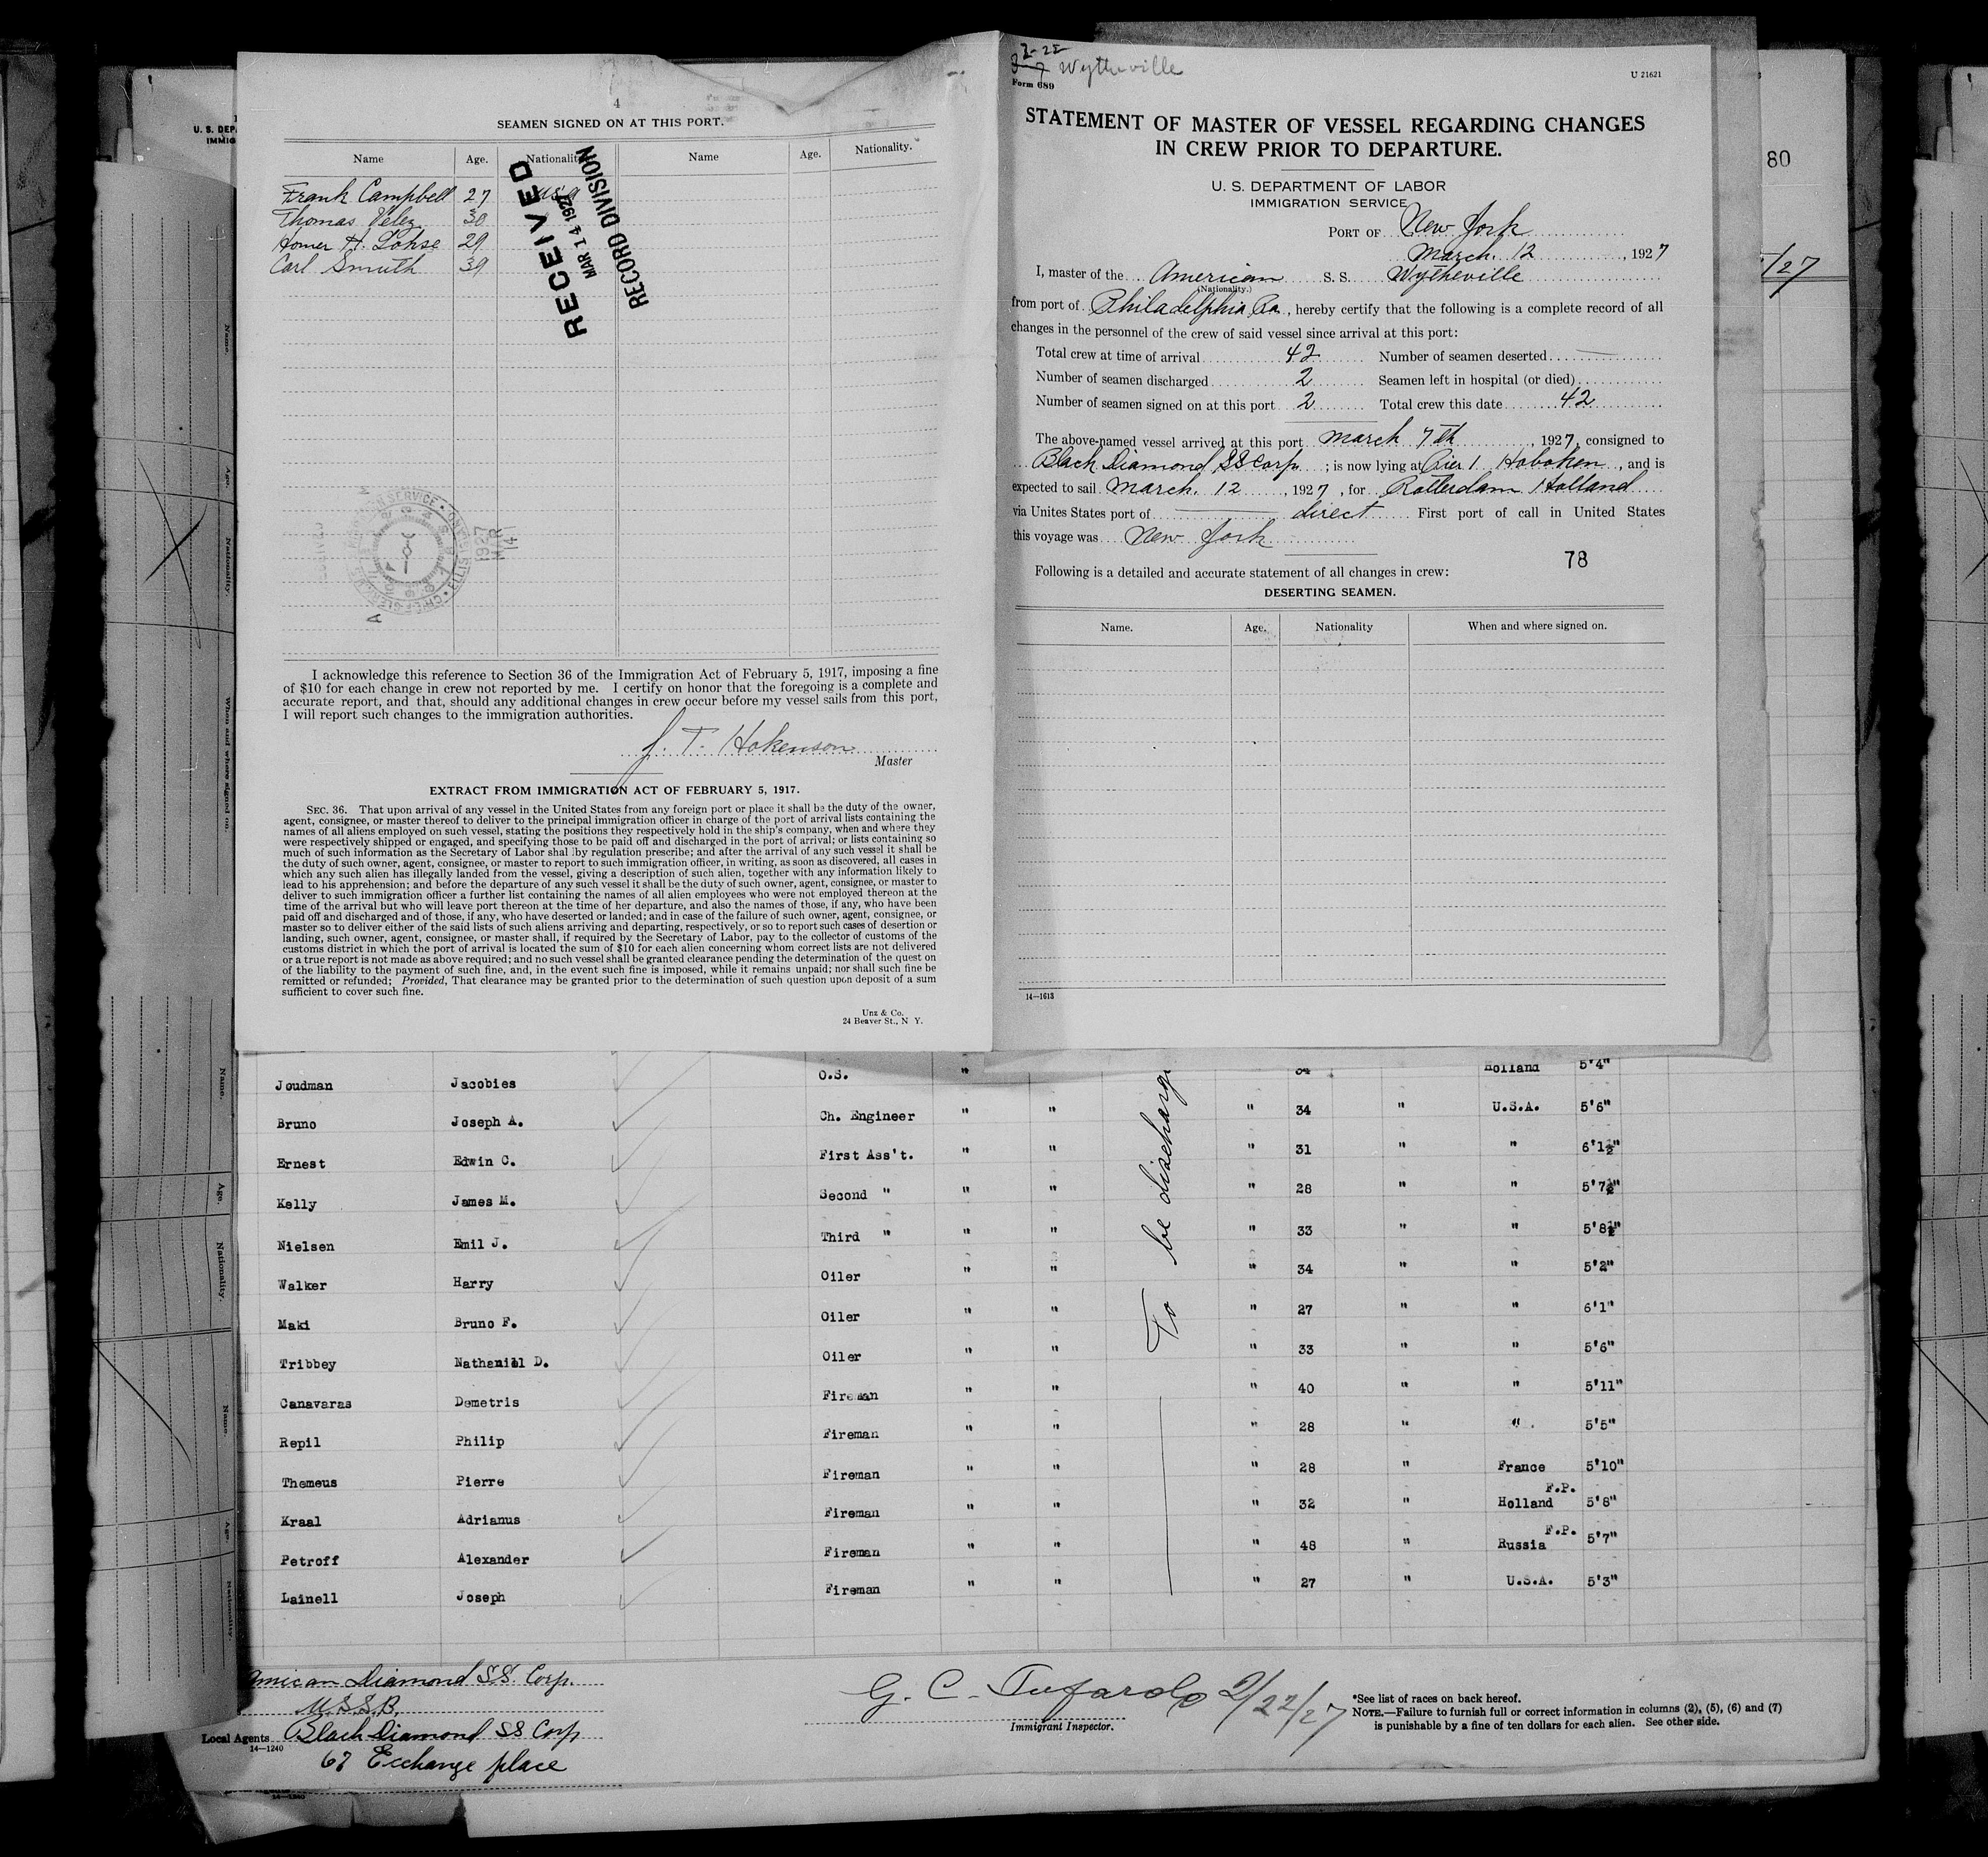 4
SEAMEN SIGNED ON AT THIS PORT.
Name Age. Nationality Name Age. Nationality.
Frank Campbell 27 USA
Thomas Velez 30
Homer H. Lohse 29
Carl Smuth 39
RECEIVED
MAR 14 1927
RECORD DIVISION
I acknowledge this reference to Section 36 of the Immigration Act of February 5, 1917, imposing a fine
of $10 for each change in crew not reported by me. I certify on honor that the foregoing is a complete and
accurate report, and that, should any additional changes in crew occur before my vessel sails from this port,
I will report such changes to the immigration authorities.
J. T. Hokenson
Master
EXTRACT FROM IMMIGRATION ACT OF FEBRUARY 5, 1917.
SEC. 36. That upon arrival of any vessel in the United States from any foreign port or place it shall be the duty of the owner,
agent, consignee, or master thereof to deliver to the principal immigration officer in charge of the port of arrival lists containing the
names of all aliens employed on such vessel, stating the positions they respectively hold in the ship's company, when and where they
were respectively shipped or engaged, and specifying those to be paid off and discharged in the port of arrival; or lists containing so
much of such information as the Secretary of Labor shal by regulation prescribe; and after the arrival of any such vessel it shall be
the duty of such owner, agent, consignee, or master to report to such immigration officer, in writing, as soon as discovered, all cases in
which any such alien has illegally landed from the vessel, giving a description of such alien, together with any information likely to
lead to his apprehension; and before the departure of any such vessel it shall be the duty of such owner, agent, consignee, or master to
deliver to such immigration officer a further list containing the names of all alien employees who were not employed thereon at the
time of the arrival but who will leave port thereon at the time of her departure, and also the names of those, if any, who have been
paid off and discharged and of those, if any, who have deserted or landed; and in case of the failure of such owner, agent, consignee, or
master so to deliver either of the said lists of such aliens arriving and departing, respectively, or so to report such cases of desertion or
landing, such owner, agent, consignee, or master shall, if required by the Secretary of Labor, pay to the collector of customs of the
customs district in which the port of arrival is located the sum of $10 for each alien concerning whom correct lists are not delivered
or a true report is not made as above required; and no such vessel shall be granted clearance pending the determination of the quest on
of the liability to the payment of such fine, and, in the event such fine is imposed, while it remains unpaid; nor shall such fine be
remitted or refunded; Provided, That clearance may be granted prior to the determination of such question upon deposit of a sum
sufficient to cover such fine.
Unz & Co.
24 Beaver St., N Y.
3-25
3-7 Wytheville
Form 689
U 21621
STATEMENT OF MASTER OF VESSEL REGARDING CHANGES
IN CREW PRIOR TO DEPARTURE.
U. S. DEPARTMENT OF LABOR
IMMIGRATION SERVICE
PORT OF New York
March. 12, 1927
I, master of the American S. S. Wytheville
(Nationality.)
from port of Philadelphia Pa., hereby certify that the following is a complete record of all
changes in the personnel of the crew of said vessel since arrival at this port:
Total crew at time of arrival 42 Number of seamen deserted
Number of seamen discharged 2 Seamen left in hospital (or died)
Number of seamen signed on at this port 2 Total crew this date 42
The above-named vessel arrived at this port March 7th, 1927, consigned to
Black Diamond SS Corp ; is now lying at Pier 1 Hoboken, and is
expected to sail March. 12, 1927, for Rotterdam Holland
via Unites States port of direct First port of call in United States
this voyage was New York
78
Following is a detailed and accurate statement of all changes in crew:
DESERTING SEAMEN.
Name. Age. Nationality When and where signed on.
14—1613
80
/27
Joudman Jacobies O.S. " 34 Holland 5'4"
Bruno Joseph A. Ch. Engineer " " " 34 " U.S.A. 5'6"
Ernest Edwin C. First Ass't. " " " 31 " " 6'1½"
Kelly James M. Second " " " " 28 " " 5'7½"
Nielsen Emil J. Third " " " " 33 " " 5'8½"
Walker Harry Oiler " " " 34 " " 5'2"
Maki Bruno F. Oiler " " " 27 " " 6'1"
Tribbey Nathaniel D. Oiler " " " 33 " " 5'6"
Canavaras Demetris Fireman " " " 40 " " 5'11"
Repil Philip Fireman " " " 28 " " 5'5"
Themeus Pierre Fireman " " " 28 " France 5'10"
Kraal Adrianus Fireman " " " 32 " F.P. Holland 5'8"
Petroff Alexander Fireman " " " 48 " F.P. Russia 5'7"
Lainell Joseph Fireman " " " 27 " U.S.A. 5'3"
To be discharg
American Diamond SS. Corp.
U.S.S.B.
Local Agents Black Diamond SS Corp
14—1240
67 Exchange place
G. C. Tufarolo 2/22/27
Immigrant Inspector.
*See list of races on back hereof.
NOTE.—Failure to furnish full or correct information in columns (2), (5), (6) and (7)
is punishable by a fine of ten dollars for each alien. See other side.
14—1240